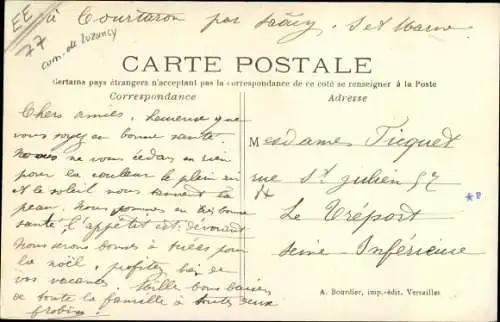 EE
77
com. de Luzancy
à Courtaron par Saâcy. Set Marne
CARTE POSTALE
Certains pays étrangers n'acceptant pas la correspondance de ce coté se renseigner à la Poste
Correspondance
Adresse
Chers amies, heureuse que
vous soyez en bonne santé.
Nous ne vous cédons en rien
pour la couleur le plein air
et le soleil nous tannent la
peau. Nous sommes en très bonne
santé, l'appétit est dévorant
Nous serons bonnes à tuées pour
la noël, profitez bien de
vos vacances. Mille bons baisers
de toute la famille à toutes deux
Mesdames Ticquet
rue St Julien 57
Le Tréport
Seine-Inférieure
A. Bourdier, imp.-édit. Versailles